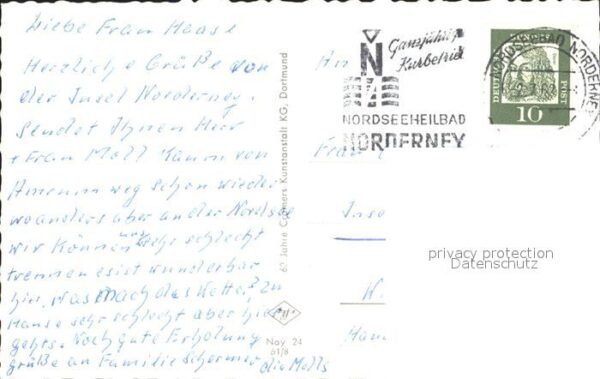 Liebe Frau Haase
Herzliche Grüße von
der Insel Norderney.
Sendet Ihnen Herr
+ Frau Moll Kaum von
Amrum weg schon wieder
wo anders aber an der Nordsee
wir können uns sehr schlecht
trennen es ist wunderbar
hir, was mach das Wetter? Zu
Hause sehr schlecht aber hier
gehts. Noch gute Erholung
grüße an Familie Schermer die Molls
60 Jahre Cramers Kunstanstalt KG, Dortmund
Noy 24
61/8
An
Frau
Inse
Ham
Ganzjährig
Kurbetrieb
N
NORDSEEHEILBAD
NORDERNEY
NORDSEEBAD NORDERNEY
DEUTSCHE BUNDESPOST
10
privacy protection
Datenschutz